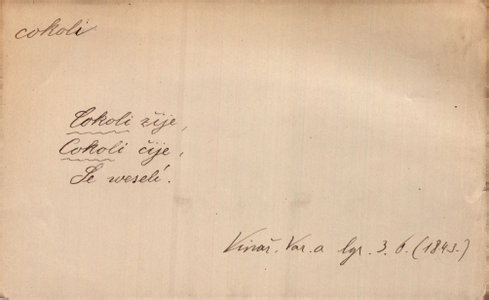 cokoli
Cokoli žije,
Cokoli čije,
Se weselí.
Vinař. Var. a lyr. 3. 6. (1843.)